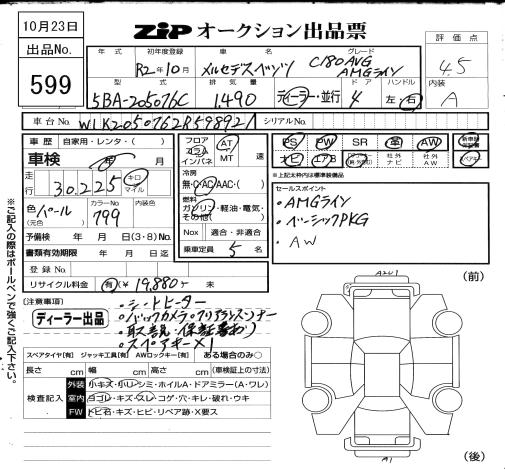 10月23日
出品No.
599
ZIP オークション出品票
評価点
4.5
内装
A
年式
初年度登録
車名
グレード
R2年10月
メルセデスベンツ
C180AVG
AMGライン
型式
排気量
ドア
ハンドル
5BA-205076C
1,490
ディーラー・並行
4
左・右
車台No.
W1K2050762R598921
シリアルNo.
車歴 自家用・レンタ・( )
車検 年 月
走行
30,225
キロ
マイル
色
(元色)
パール
カラーNo
799
内装色
予備検 年 月 日(3・8)No.
書類有効期限 年 月 日迄
登録No.
リサイクル料金 有(¥19,880) 未
フロア
コラム
インパネ
AT
MT
速
冷房
無・AC・AAC・( )
燃料
ガソリン・軽油・電気・
その他( )
Nox 適合・非適合
乗車定員 5 名
PS PW SR 革 AW
ナビ エアB
社外ナビ
社外AW
※上記太枠内は標準装備品
セールスポイント
・AMGライン
・ベーシックPKG
・AW
[注意事項]
ディーラー出品
・シートヒーター
・バックカメラ・クリアランスソナー
・取説・保証書有り
・スペアキー×1
スペアタイヤ[有] ジャッキ工具[有] AWロックキー[有] ある場合のみ○
長さ cm 幅 cm 高さ cm (車検証上の寸法)
検査記入
外装 小キズ・小リ・シミ・ホイルA・ドアミラー(A・ワレ)
室内 ヨゴレ・キズ・スレ・コゲ・穴・キレ・破れ・ウキ
FW トビ石・キズ・ヒビ・リペア跡・X要ス
※ご記入の際はボールペンで強くご記入下さい。
(前)
(後)
A1